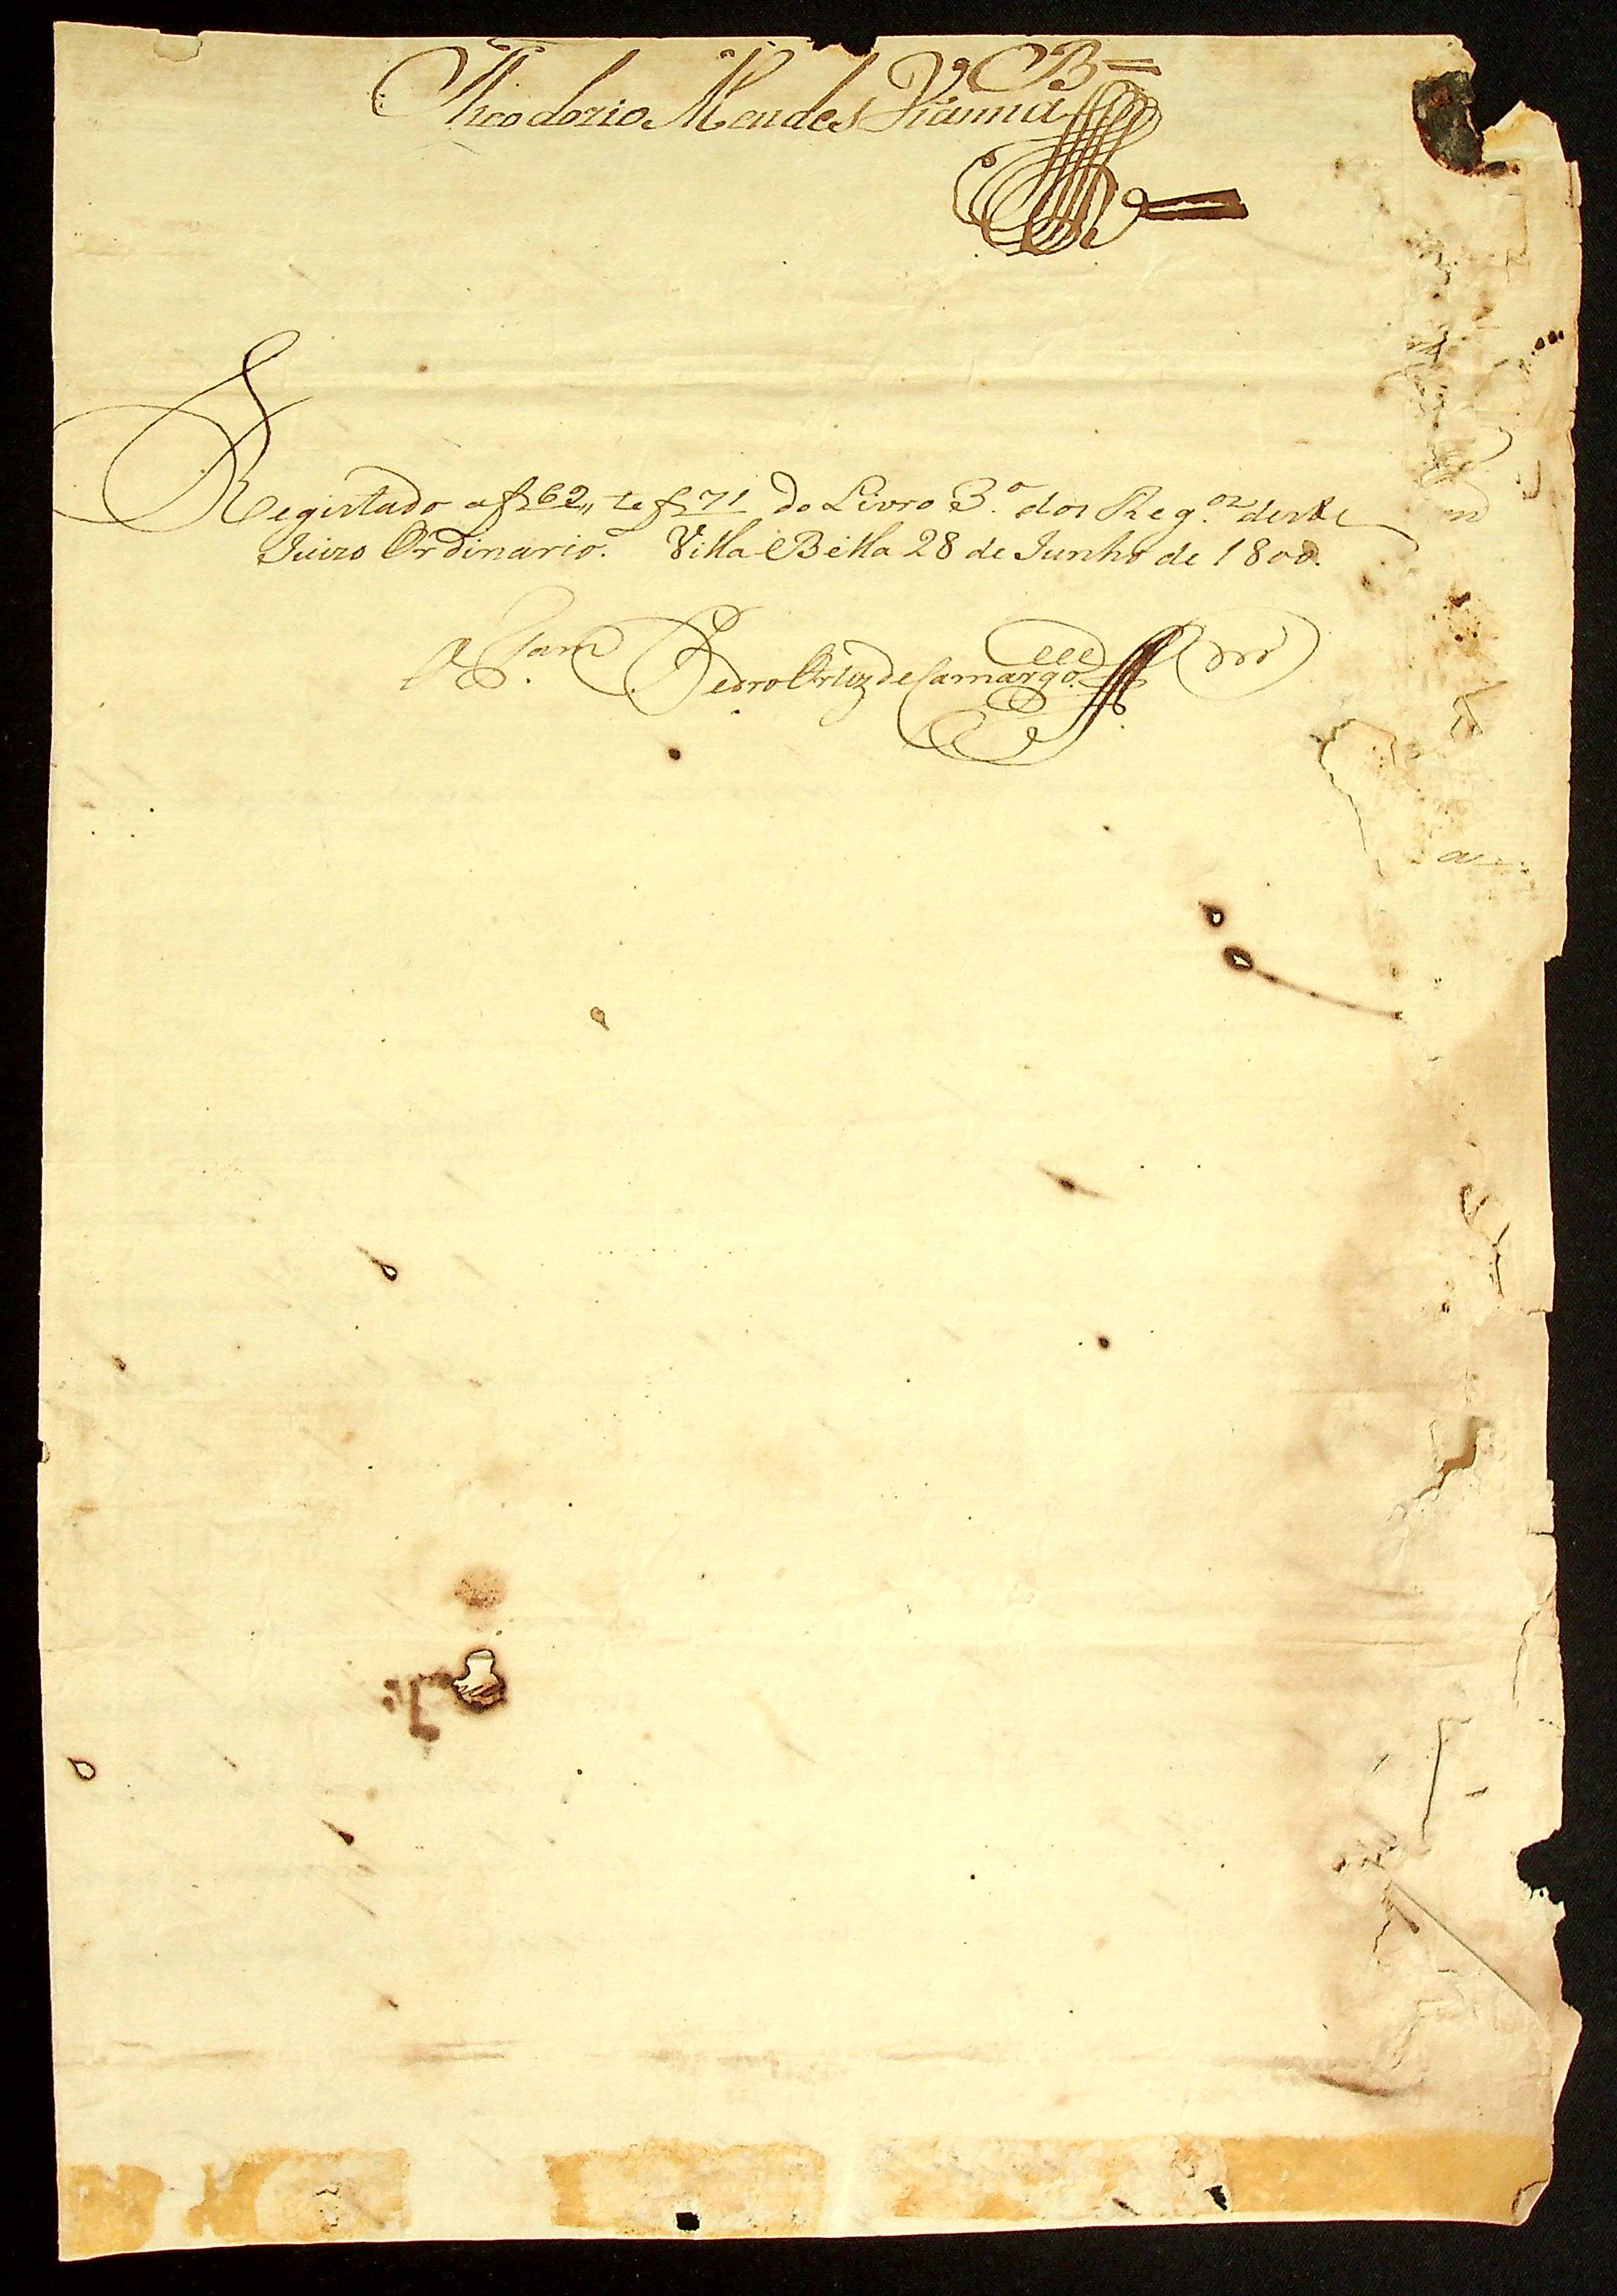 V. C B =
Theodozio Mendes Vianna
Registado a f 62,, te f 71 do Livro 3.º dos Reg.os deste
Juizo Ordinario. Villa Bella 28 de Junho de 1800.
Pedro Ortiz de Camargo